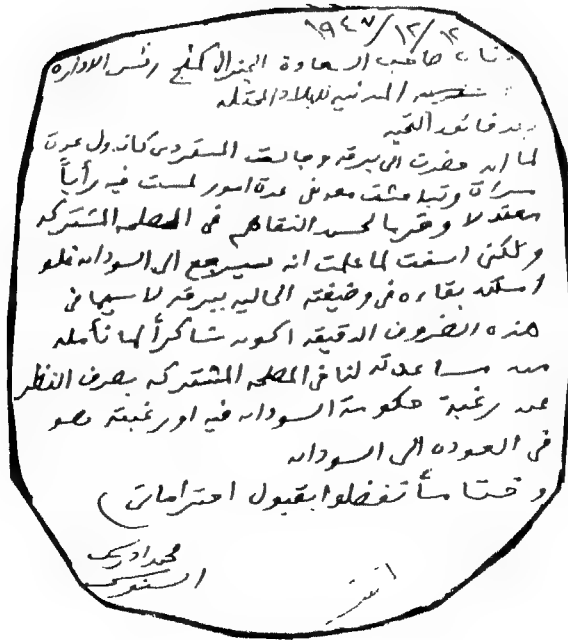 ١٩٤٧/١٢/١٢
جناب صاحب السعادة الجنرال كمنج رئيس الاداره
المدنيه للبلاد المحتله
بعد فائق التحيه
لما ان حضرت الى برقه وجالست المستر دى كاندول عدة
مراة وتباحثت معه فى عدة امور لمست فيه رأياً
معتدلا وقربا لحسن التفاهم فى المصلحه المشتركه
ولكنى اسفت لما علمت انه سيرجع الى السودان فلو
امكن بقاءه فى وضيفته الحاليه ببرقه لاسيما فى
هذه الضروف الدقيقه اكون شاكراً لما نأمله
من مساعدته لنا فى المصلحه المشتركه بصرف النظر
عن رغبة حكومة السودان فيه او رغبته هو
فى العوده الى السودان
وختاماً تفضلوا بقبول احتراماتى
محمد ادريس
السنوسى